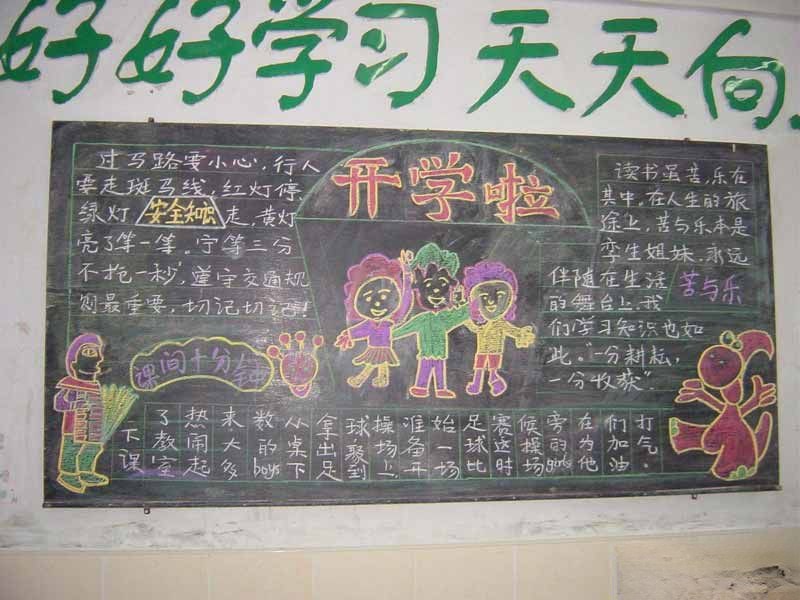 好好学习天天向
开学啦
过马路要小心,行人
要走斑马线,红灯停
绿灯 安全知识 走,黄灯
亮了等一等。宁等三分
不抢一秒,遵守交通规
则最重要,切记切记!
读书虽苦,乐在
其中,在人生的旅
途上,苦与乐本是
孪生姐妹,永远
伴随在生活 苦与乐
的舞台上,我
们学习知识也如
此。“一分耕耘,
一分收获”.
课间十分钟
下课
了教室
热闹起
来大多
数的boys
从桌下
拿出足
球聚到
操场上
准备开
始一场
足球比
赛这时
候操场
旁的girls
在为他
们加油
打气。